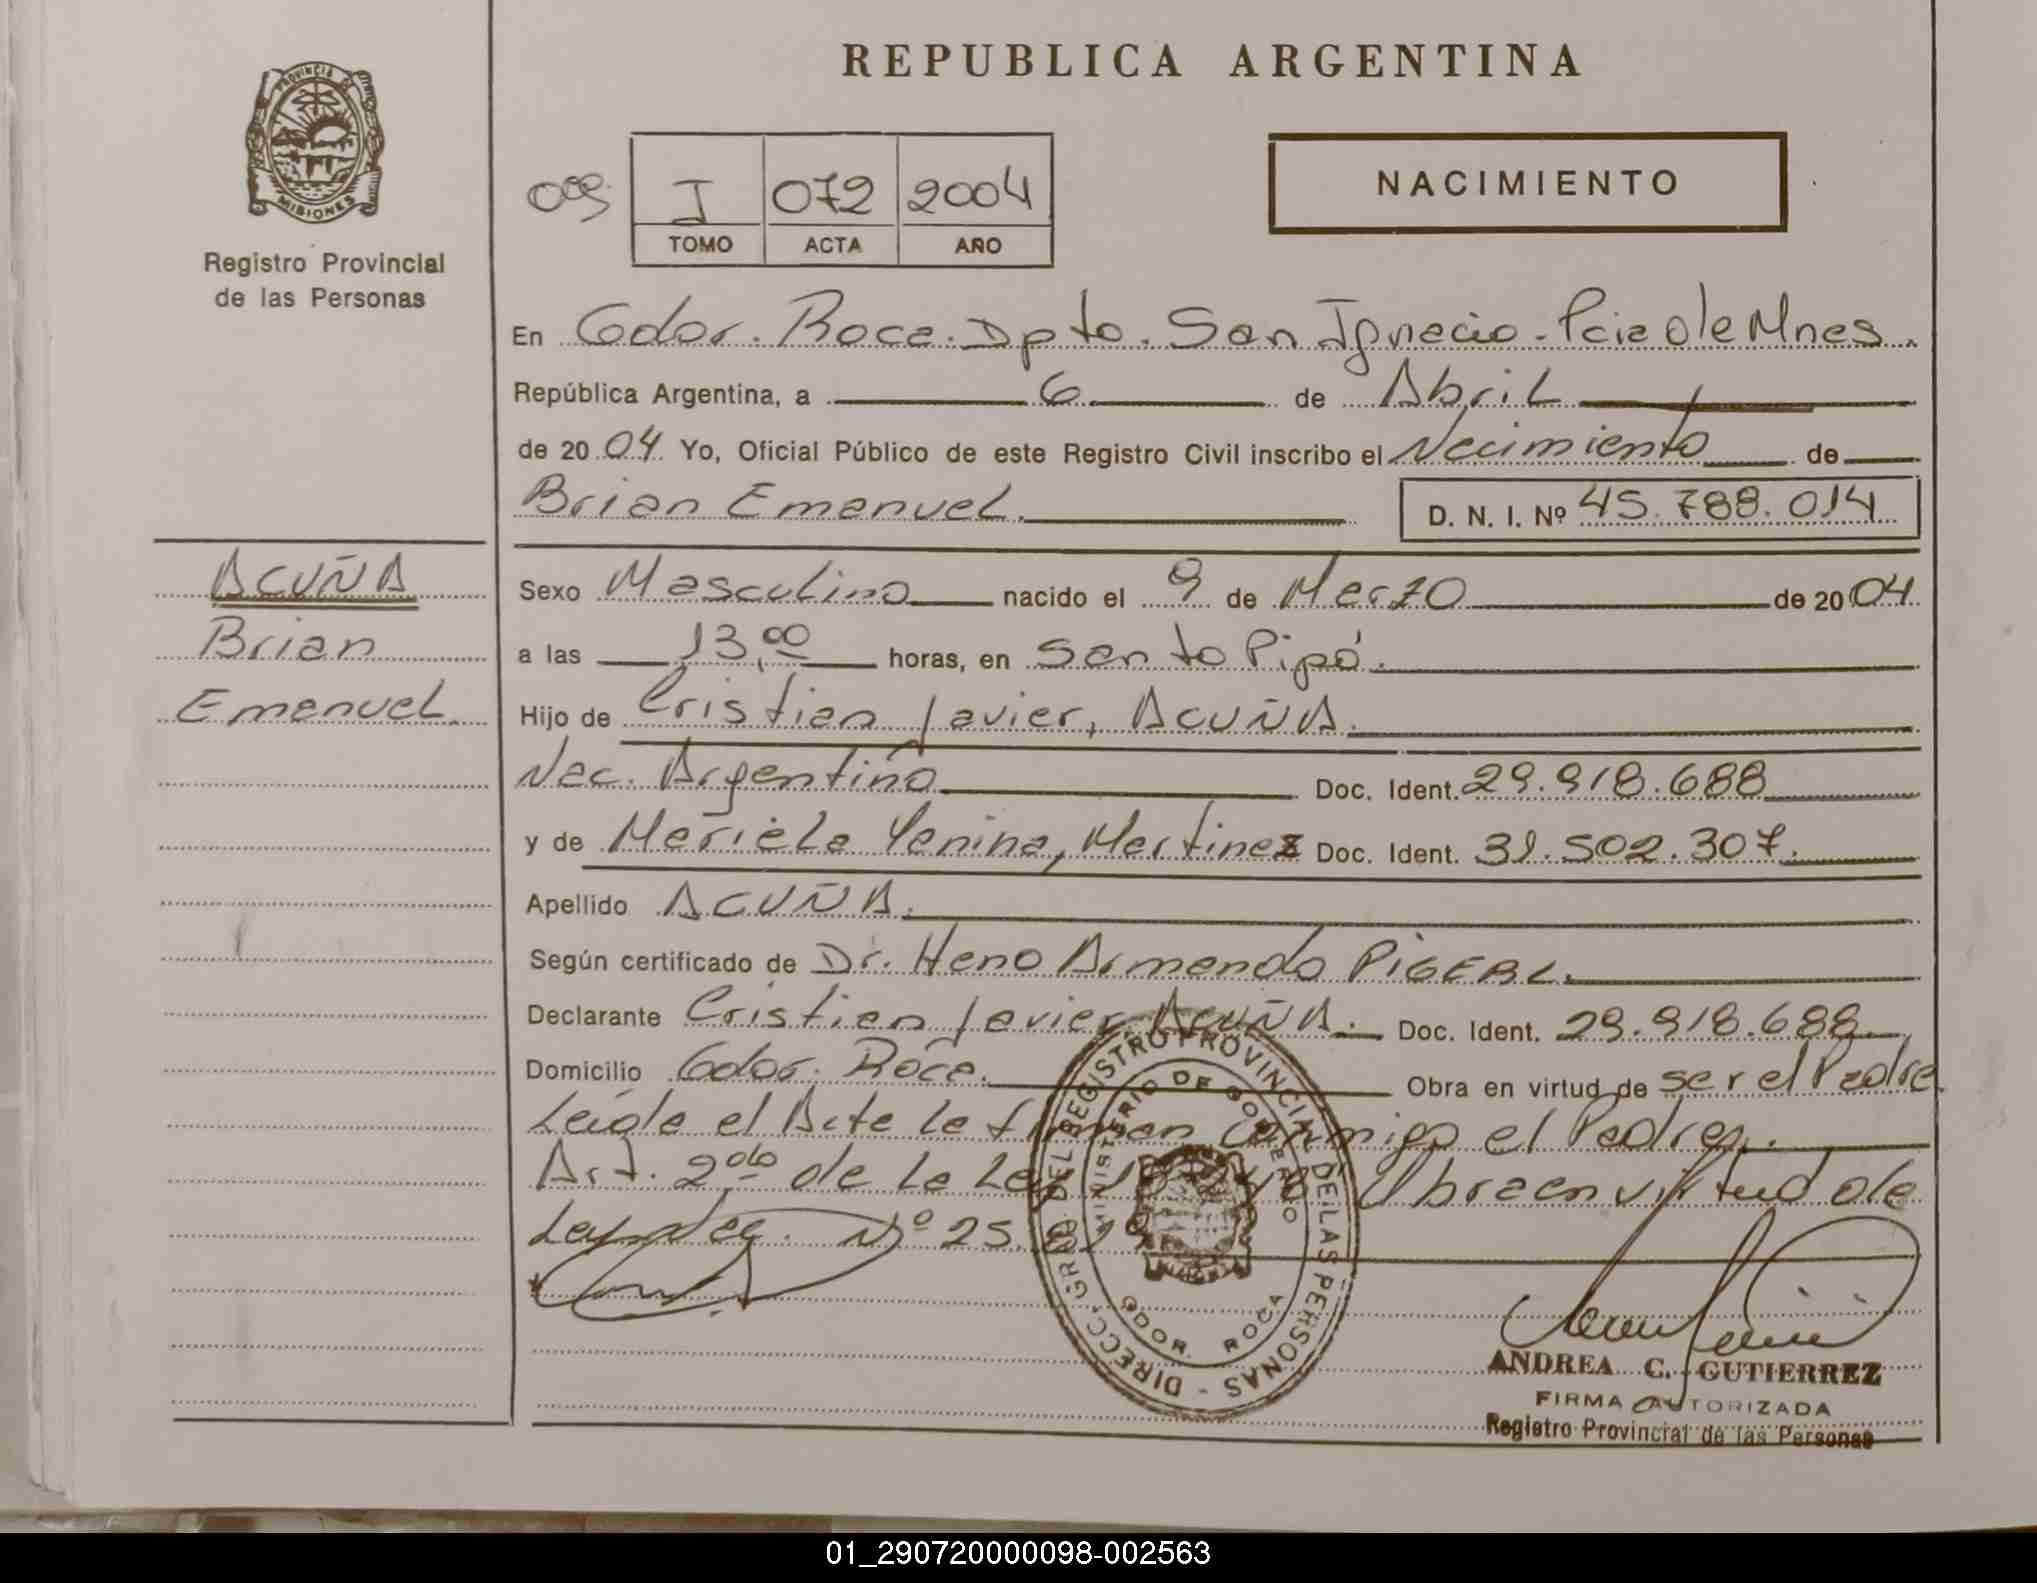 REPUBLICA ARGENTINA
PROVINCIA DE
MISIONES
Registro Provincial
de las Personas
009 I 072 2004
TOMO ACTA AÑO
NACIMIENTO
En Gdor. Roca. Dpto. San Ignacio - Pcia de Mnes.
República Argentina, a 6 de Abril
de 2004 Yo, Oficial Público de este Registro Civil inscribo el Nacimiento de
Brian Emanuel. D. N. I. Nº 45.788.014
ACUÑA
Brian
Emanuel.
Sexo Masculino nacido el 9 de Marzo de 2004
a las 13,00 horas, en Santo Pipó.
Hijo de Cristian Javier, ACUÑA.
Nac. Argentino Doc. Ident. 29.918.688
y de Mariela Yanina, Martinez Doc. Ident. 31.502.307.
Apellido ACUÑA.
Según certificado de Dr. Heno Armando PIGERL.
Declarante Cristian Javier ACUÑA. Doc. Ident. 29.918.688
Domicilio Gdor. Roca. Obra en virtud de ser el Padre
Leída el Acta la firman conmigo el Padres.
Art. 2do de la Ley Obra en virtud de
Ley Nac. Nº 25.
DIRECC. GRAL. DEL REGISTRO PROVINCIAL DE LAS PERSONAS -
MINISTERIO DE GOBIERNO
GDOR. ROCA
ANDREA C. GUTIERREZ
FIRMA AUTORIZADA
Registro Provincial de las Personas
01_290720000098-002563